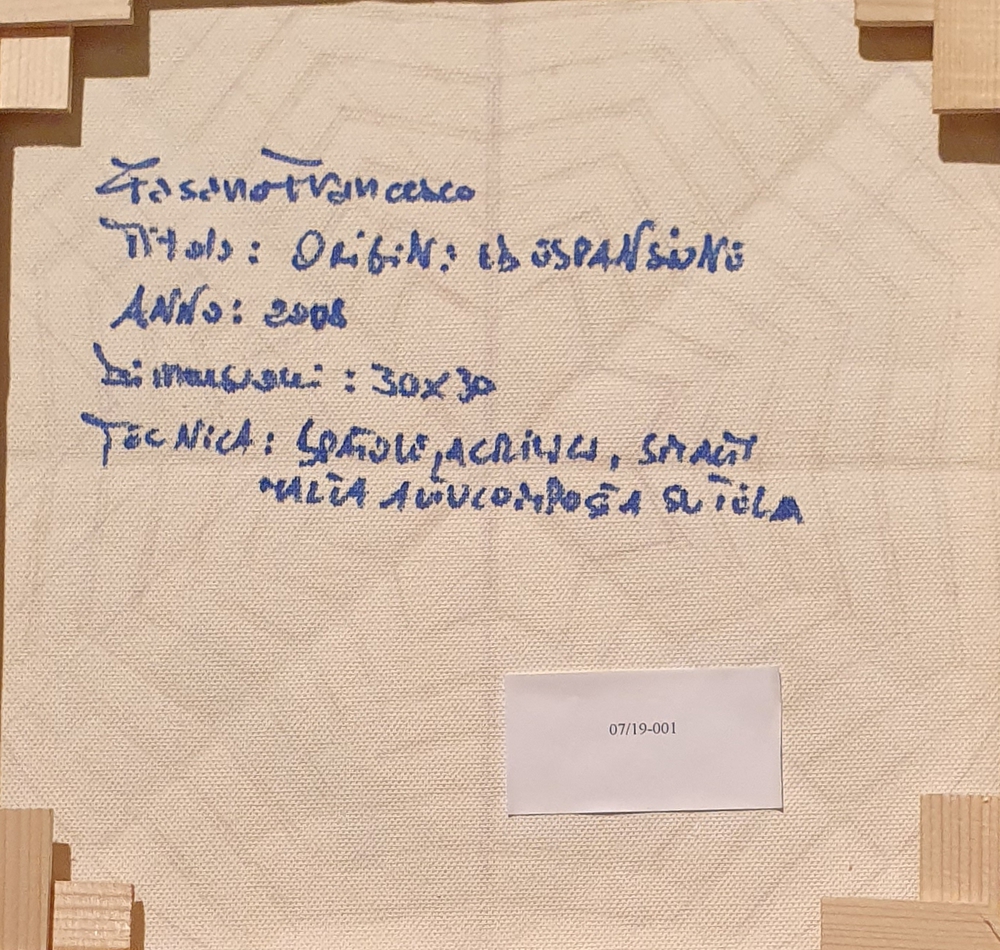 Fasano Francesco
Titolo: ORIGINI ED ESPANSIONE
ANNO: 2008
Dimensioni: 30x30
TECNICA: SPATOLE, ACRILICI, SMALTI
MALTA AUTOCOMPOSTA SU TELA
07/19-001